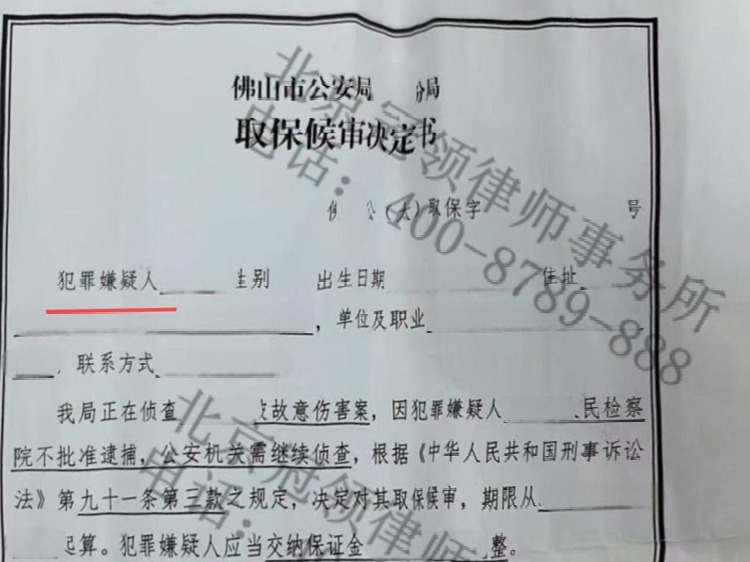 佛山市公安局 分局
取保候审决定书
公(大)取保字 号
犯罪嫌疑人 性别 出生日期 住址
,单位及职业
,联系方式
我局正在侦查 故意伤害案,因犯罪嫌疑人 、民检察
院不批准逮捕,公安机关需继续侦查,根据《中华人民共和国刑事诉讼
法》第九十一条第三款之规定,决定对其取保候审,期限从
起算。犯罪嫌疑人应当交纳保证金 整。
北京冠领律师事务所
电话:400-8789-888
北京冠领律师
电话: